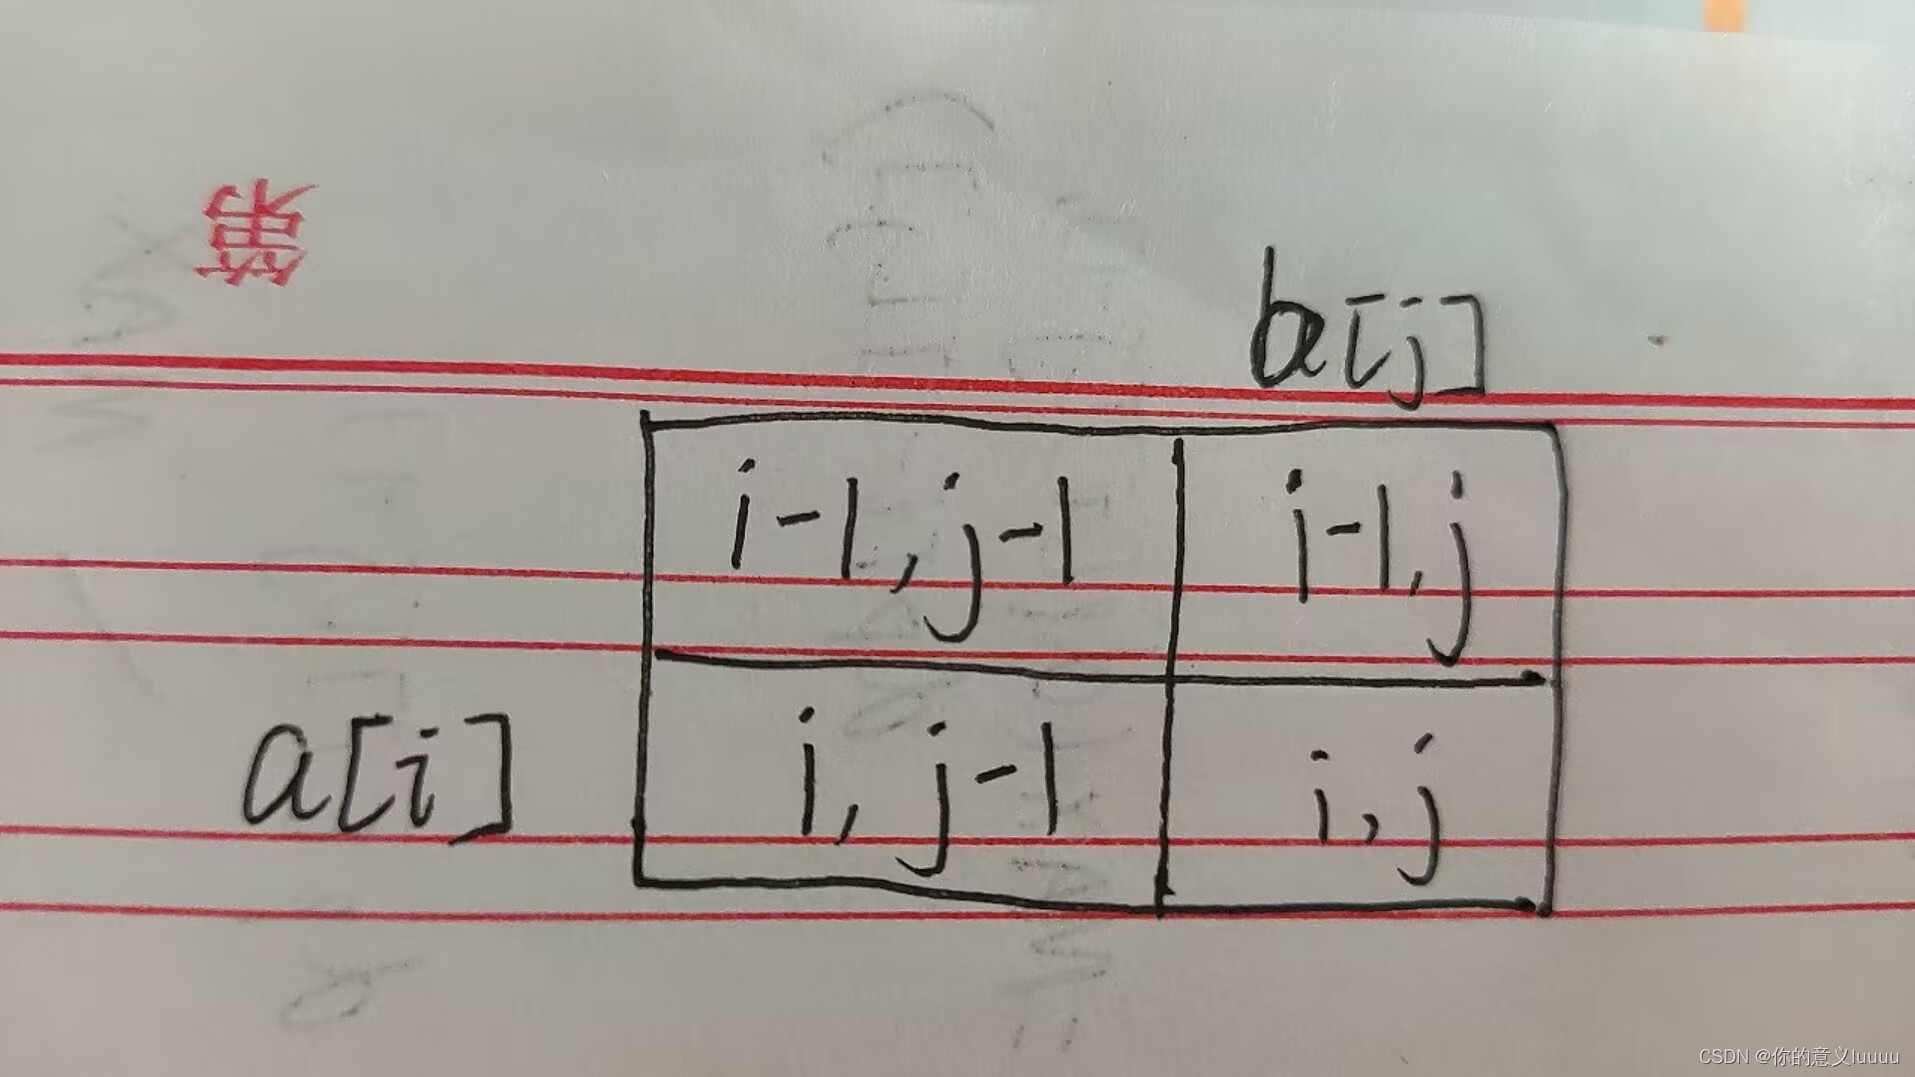 第
b[j]
i-1,j-1 i-1,j
a[i] i,j-1 i,j
CSDN @你的意义luuuu